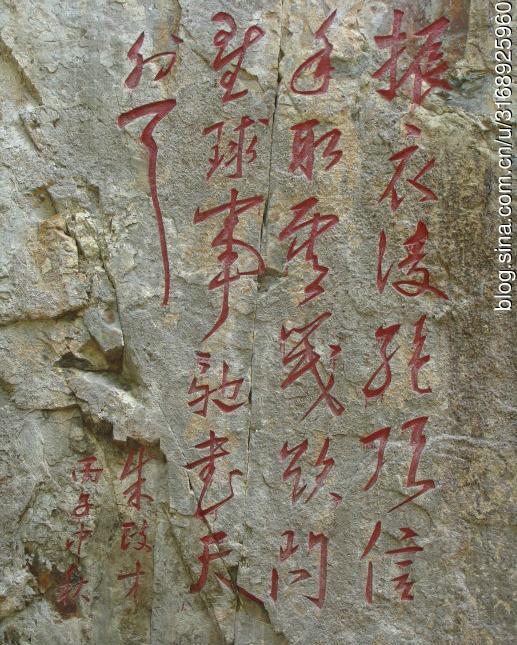 振衣凌绝顶信
手取雲笺欲问
星球事驰书天
外
朱政才
丙午中秋
blog.sina.com.cn/u/3168925960